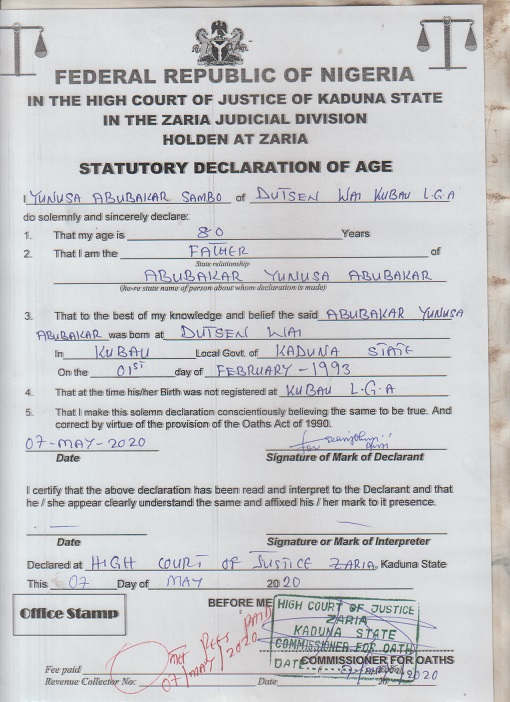 FEDERAL REPUBLIC OF NIGERIA
IN THE HIGH COURT OF JUSTICE OF KADUNA STATE
IN THE ZARIA JUDICIAL DIVISION
HOLDEN AT ZARIA
STATUTORY DECLARATION OF AGE
I YUNUSA ABUBAKAR SAMBO of DUTSEN WAI KUBAU L.G.A
do solemnly and sincerely declare:
1. That my age is 80 Years
2. That I am the FATHER of
State relationship
ABUBAKAR YUNUSA ABUBAKAR
(here state name of person about whom declaration is made)
3. That to the best of my knowledge and belief the said ABUBAKAR YUNUSA
ABUBAKAR was born at DUTSEN WAI
In KUBAU Local Govt. of KADUNA STATE
On the 01ST day of FEBRUARY - 1993
4. That at the time his/her Birth was not registered at KUBAU L.G.A
5. That I make this solemn declaration conscientiously believing the same to be true. And
correct by virtue of the provision of the Oaths Act of 1990.
07-MAY-2020
Date Signature of Mark of Declarant
I certify that the above declaration has been read and interpret to the Declarant and that
he / she appear clearly understand the same and affixed his / her mark to it presence.
Date Signature or Mark of Interpreter
Declared at HIGH COURT OF JUSTICE ZARIA, Kaduna State
This 07 Day of MAY 2020
Office Stamp
BEFORE ME
HIGH COURT OF JUSTICE
ZARIA
KADUNA STATE
COMMISSIONER FOR OATH
DATE
COMMISSIONER FOR OATHS
PAID
07/MAY/2020
Fee paid
Revenue Collector No: Date 2020